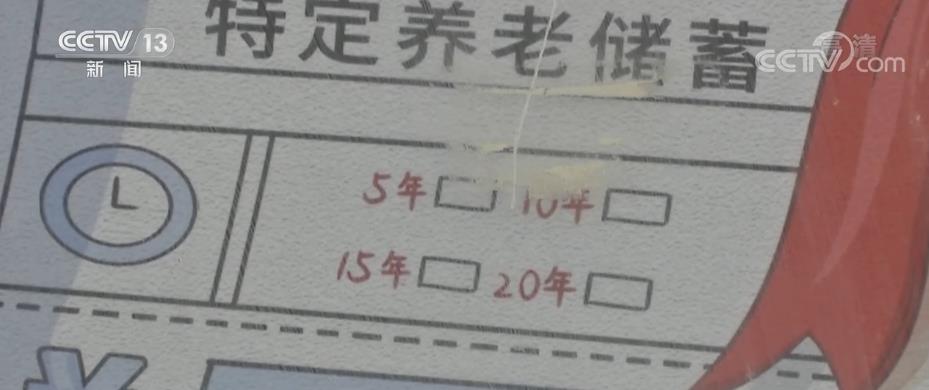 特定养老储蓄
CCTV 13
新闻
高清
CCTV com
5年 10年
15年 20年
¥